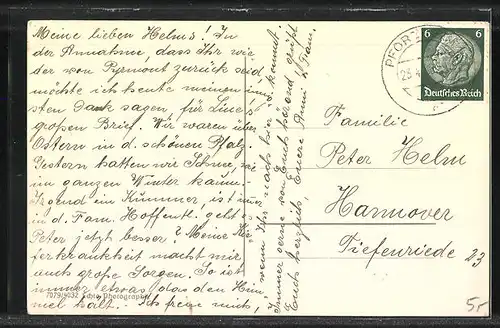 Meine lieben Helms! In
der Annahme, dass Ihr wie
der von Pyrmont zurück seid,
möchte ich heute meinen inn
sten Dank sagen, für Eure
großen Brief. Wir waren über
Ostern in d. schönen Pfalz.
Gestern hatten wir Schnee, wie
im ganzen Winter kaum.
Irgend ein Kummer, ist immer
in d. Fam. Hoffentl. geht es
Peter jetzt besser? Meine
ferkrankheit macht mir
auch große Sorgen. So ist
immer etwas, das den Him
mel hält. Ich freue mich,
wenn Ihr nach hier kommt.
Immer gerne von Euch hörend grüßt
Euch herzlich, Eure Anni
PFOR
6 6
Deutsches Reich
Familie
Peter Helm
Hannover
Tiefenriede 23
7079/9032 Echte Photographie
5,-